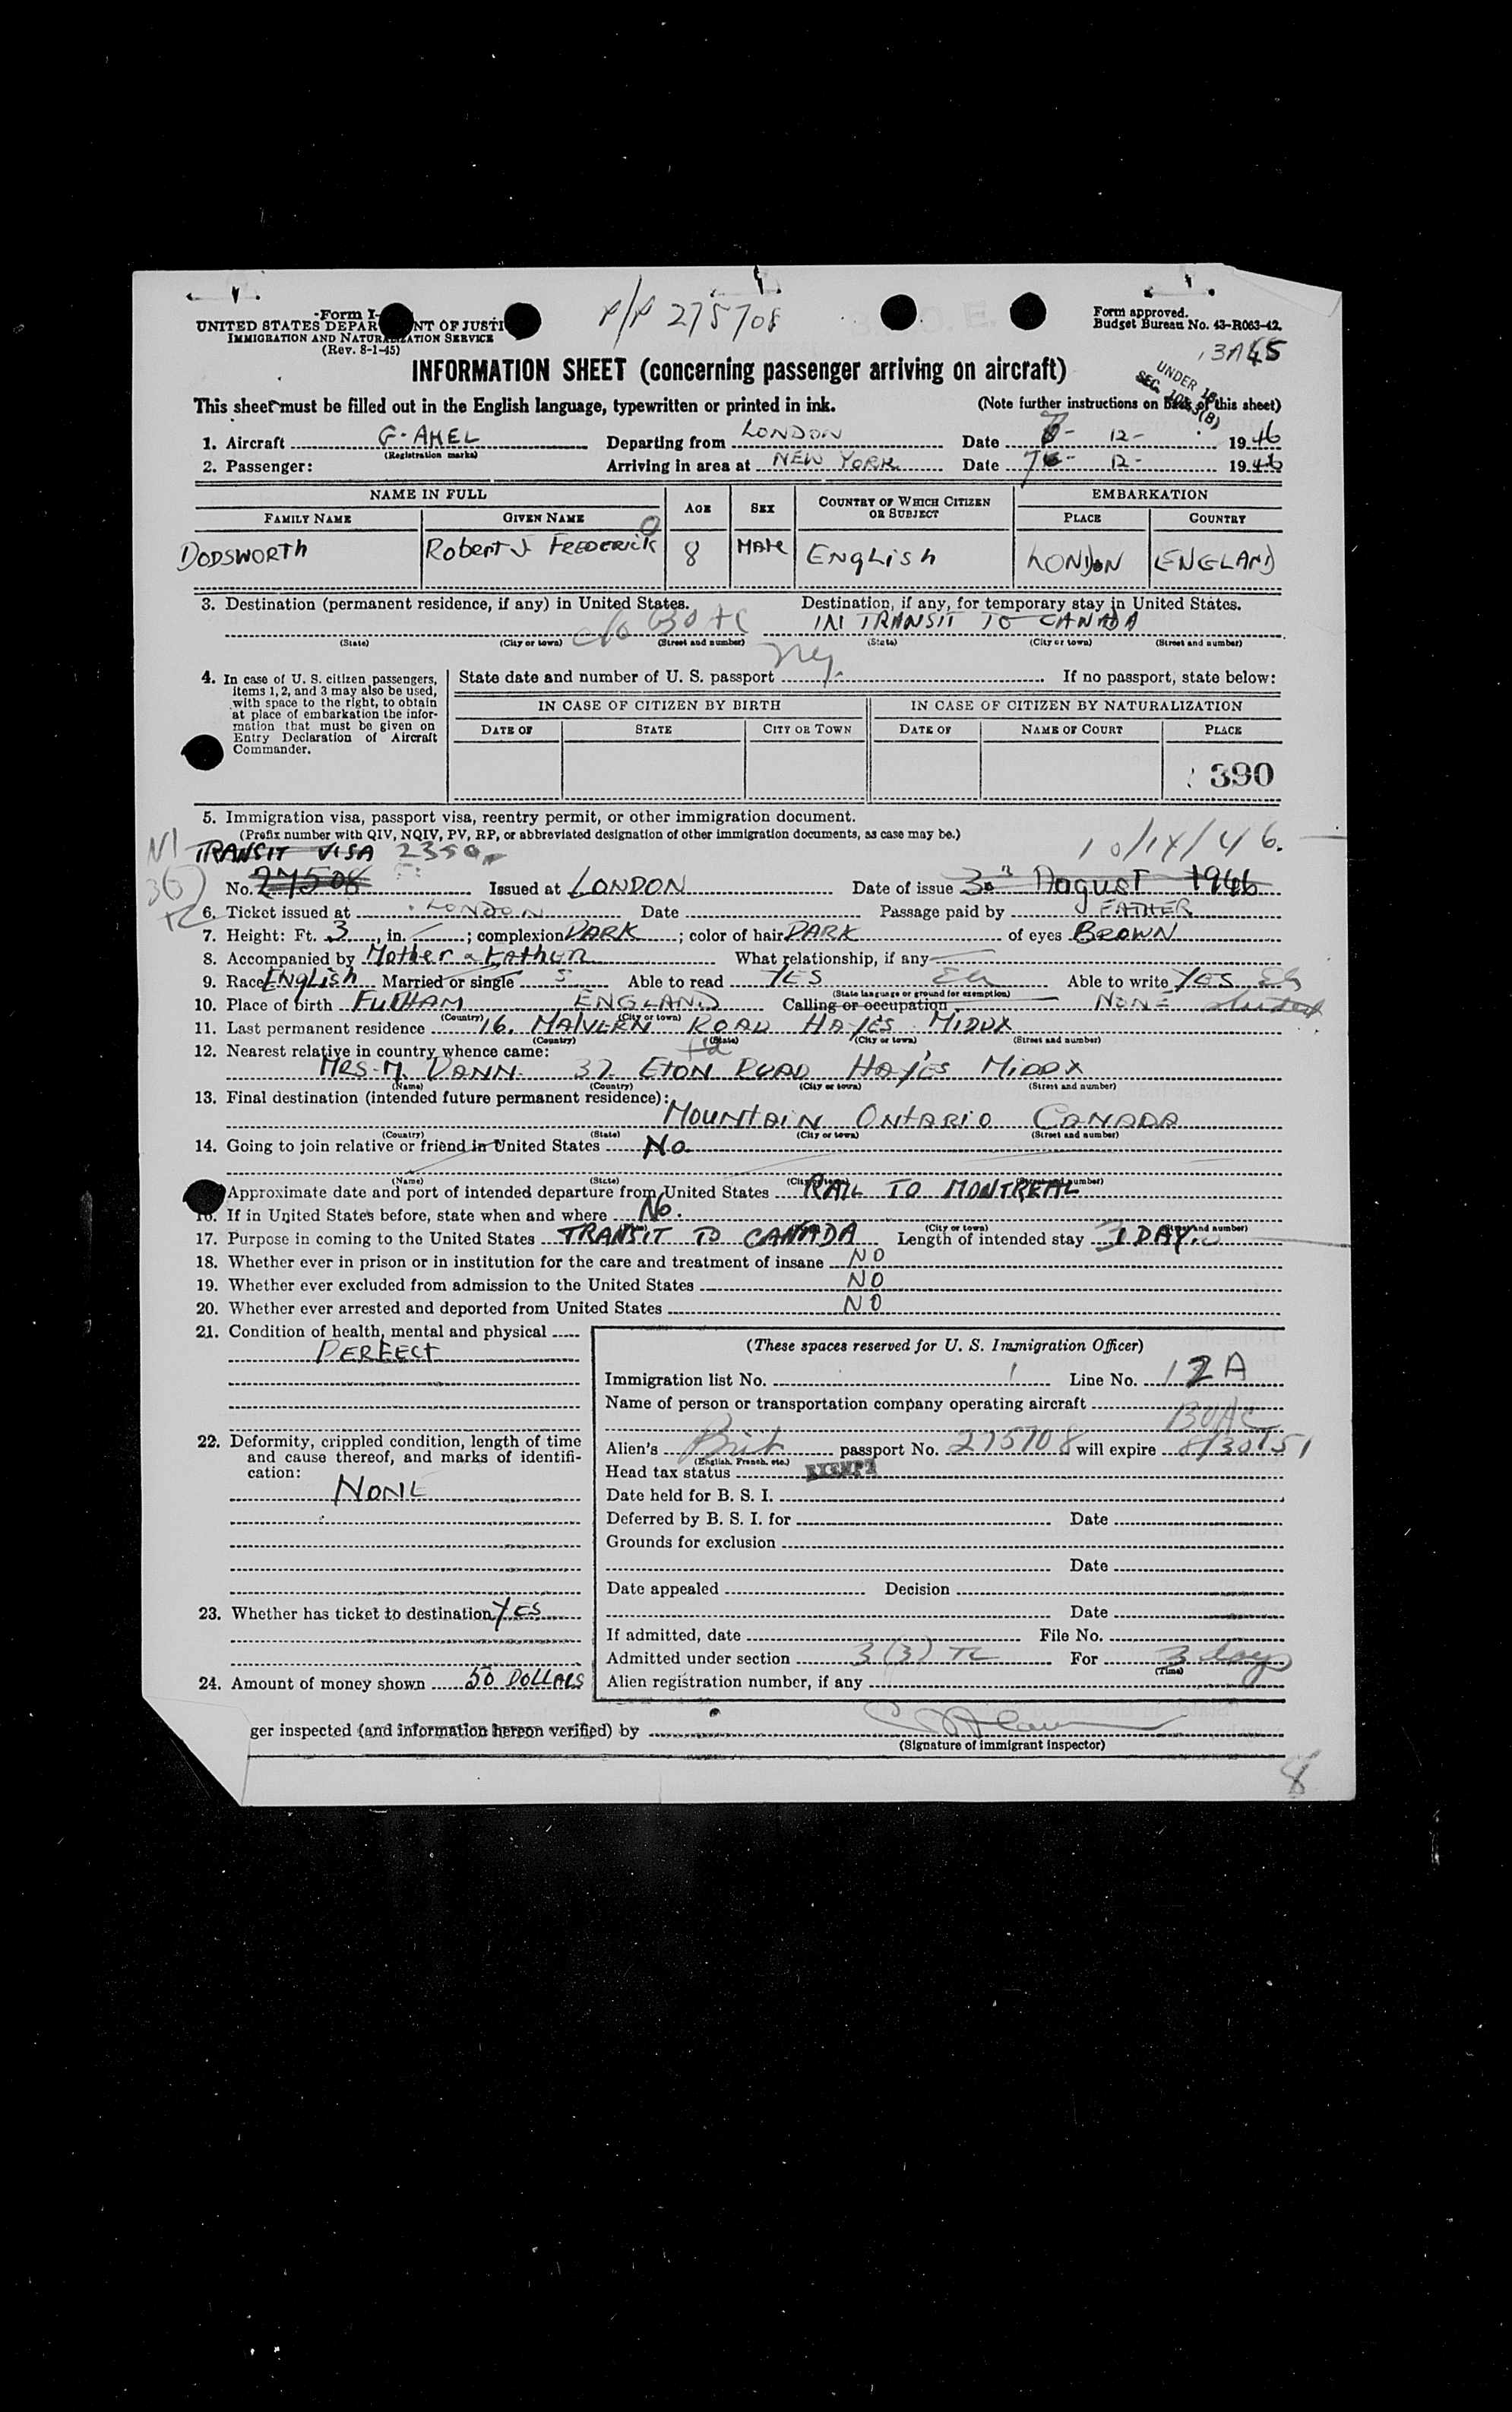 Form I-
P/P 275708
Form approved.
UNITED STATES DEPAR NT OF JUSTI
Budget Bureau No. 43-R063-42.
IMMIGRATION AND NATURALIZATION SERVICE
(Rev. 8-1-45)
INFORMATION SHEET (concerning passenger arriving on aircraft)
UNDER 16
This sheet must be filled out in the English language, typewritten or printed in ink. (Note further instructions on back of this sheet)
1. Aircraft G-AHEL Departing from LONDON Date 7- 12- 1946
(Registration marks)
2. Passenger: Arriving in area at NEW YORK Date 12- 1946
NAME IN FULL AGE SEX COUNTRY OF WHICH CITIZEN OR SUBJECT EMBARKATION
FAMILY NAME GIVEN NAME PLACE COUNTRY
DODSWORTH Robert J FREDERICK 8 MALE ENGLISH LONDON ENGLAND
3. Destination (permanent residence, if any) in United States. Destination, if any, for temporary stay in United States.
IN TRANSIT TO CANADA
(State) (City or town) (Street and number) (State) (City or town) (Street and number)
4. In case of U. S. citizen passengers, items 1, 2, and 3 may also be used, with space to the right, to obtain at place of embarkation the information that must be given on Entry Declaration of Aircraft Commander.
State date and number of U. S. passport If no passport, state below:
IN CASE OF CITIZEN BY BIRTH IN CASE OF CITIZEN BY NATURALIZATION
DATE OF STATE CITY OR TOWN DATE OF NAME OF COURT PLACE
390
5. Immigration visa, passport visa, reentry permit, or other immigration document.
(Prefix number with QIV, NQIV, PV, RP, or abbreviated designation of other immigration documents, as case may be.)
TRANSIT VISA 10/14/46.
No. 27508 Issued at LONDON Date of issue 30 August 1946
6. Ticket issued at LONDON Date Passage paid by FATHER
7. Height: Ft. 3, in. ; complexion DARK ; color of hair DARK of eyes BROWN
8. Accompanied by Mother & Father What relationship, if any
9. Race English Married or single S Able to read YES Able to write YES
(State language or ground for exemption)
10. Place of birth FULHAM ENGLAND Calling or occupation NONE student
(Country) (City or town)
11. Last permanent residence 16. MALVERN ROAD HAYES MIDDX
(Country) (State) (City or town) (Street and number)
12. Nearest relative in country whence came:
MRS. M DANN. 32 ETON ROAD HAYES MIDDX
(Name) (Country) (City or town) (Street and number)
13. Final destination (intended future permanent residence):
MOUNTAIN ONTARIO CANADA
(Country) (State) (City or town) (Street and number)
14. Going to join relative or friend in United States No
(Name) (State) (City or town) (Street and number)
Approximate date and port of intended departure from United States RAIL TO MONTREAL
16. If in United States before, state when and where No.
(City or town) (Street and number)
17. Purpose in coming to the United States TRANSIT TO CANADA Length of intended stay 3 DAY.
18. Whether ever in prison or in institution for the care and treatment of insane NO
19. Whether ever excluded from admission to the United States NO
20. Whether ever arrested and deported from United States NO
21. Condition of health, mental and physical
PERFECT
(These spaces reserved for U. S. Immigration Officer)
Immigration list No. 1 Line No. 12A
Name of person or transportation company operating aircraft
BOAC
22. Deformity, crippled condition, length of time and cause thereof, and marks of identification:
NONE
Alien's Brit passport No. 275708 will expire 8/30/51
(English, French, etc.)
Head tax status EXEMPT
Date held for B. S. I.
Deferred by B. S. I. for Date
Grounds for exclusion
Date
Date appealed Decision
23. Whether has ticket to destination YES
Date
If admitted, date File No.
Admitted under section 3(3) TC For 3 days
(Time)
24. Amount of money shown 50 DOLLARS
Alien registration number, if any
ger inspected (and information hereon verified) by
(Signature of immigrant inspector)
8